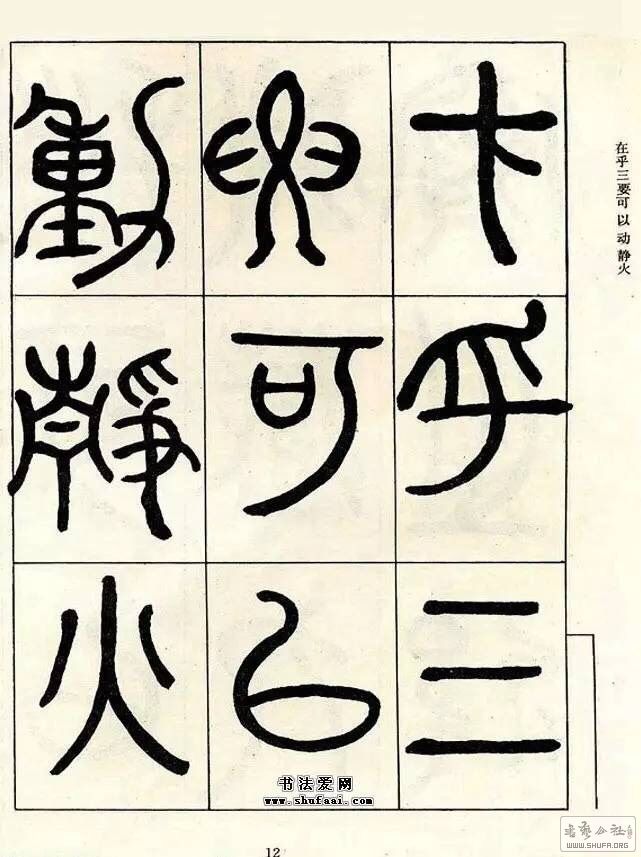 在乎三
要可以
動靜火
在乎三要可以动静火
书法爱网
www.shufaai.com
12
书艺公社
WWW.SHUFA.ORG